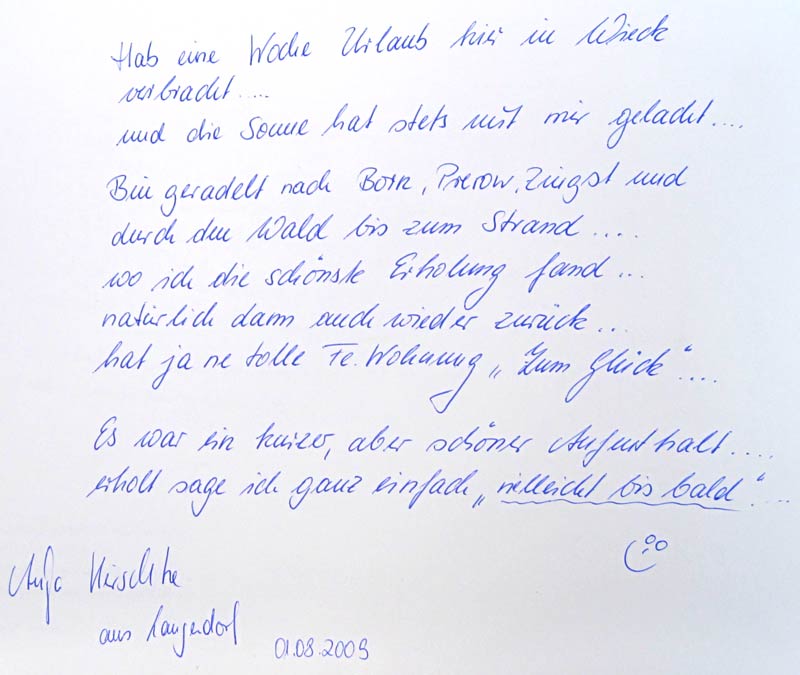 Hab eine Woche Urlaub hier in Wieck
verbracht.....
und die Sonne hat stets mit mir gelacht....
Bin geradelt nach Born, Prerow, Zingst und
durch den Wald bis zum Strand.....
wo ich die schönste Erholung fand...
natürlich dann auch wieder zurück...
hat ja ne tolle Fe.Wohnung „Zum Glück“....
Es war ein kurzer, aber schöner Aufenthalt....
erholt sage ich ganz einfach „vielleicht bis bald“...
Anja
aus Langendorf
01.08.2009